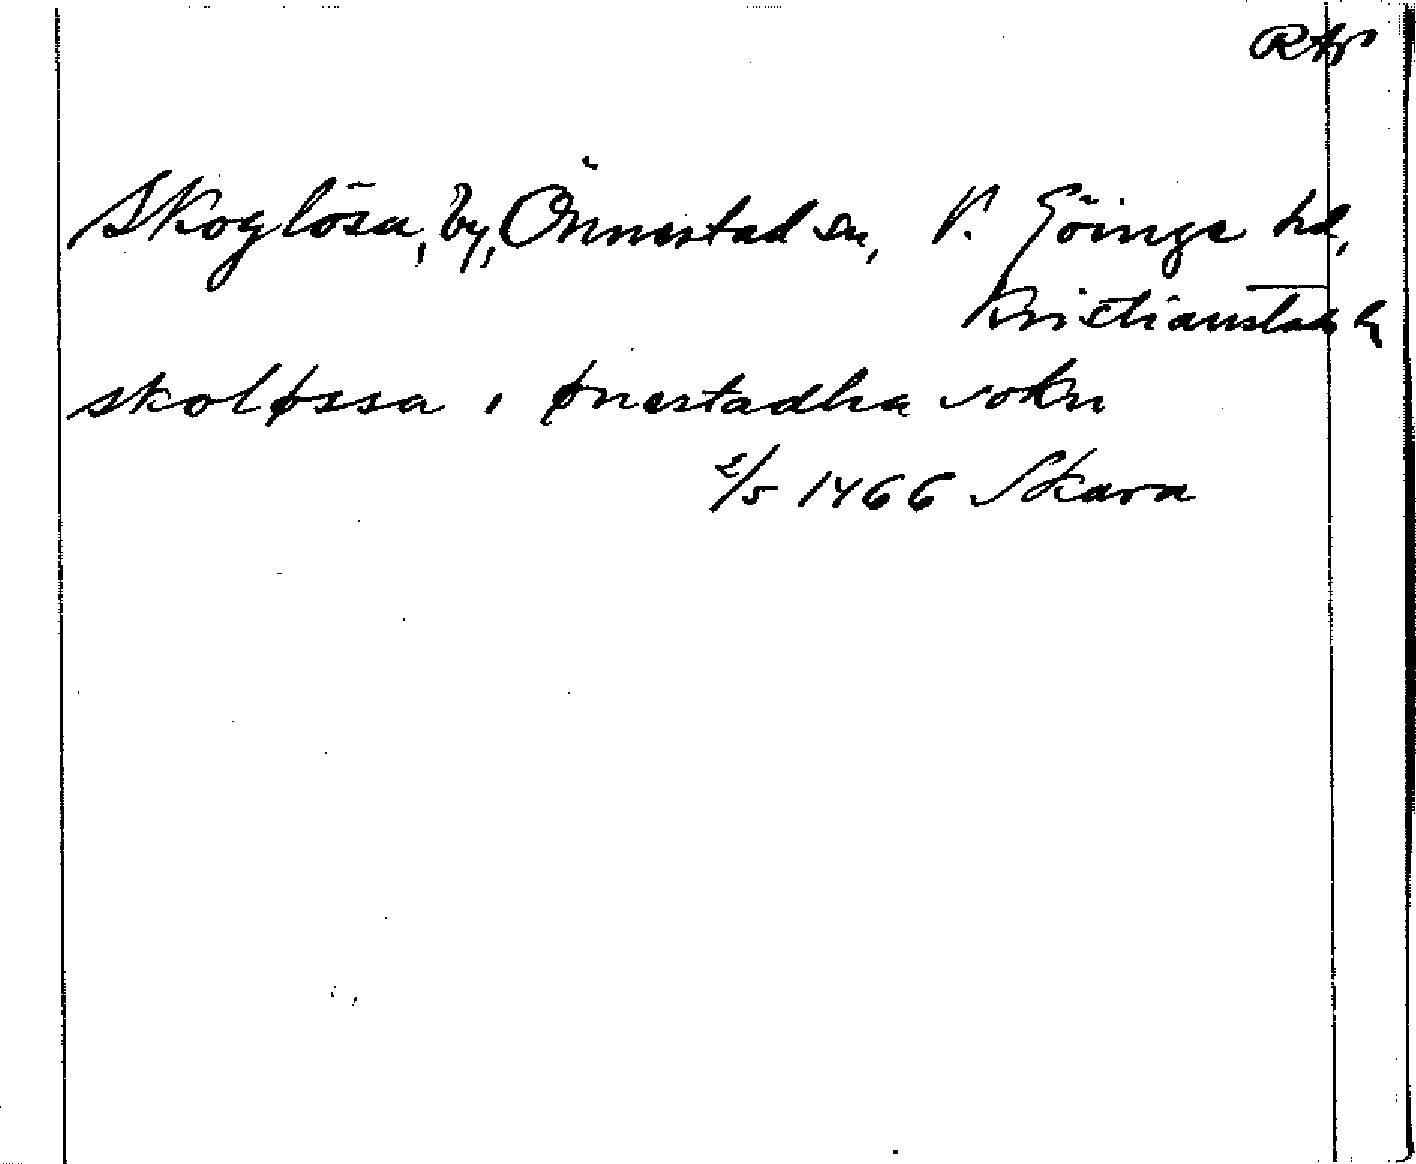 RAp
Skoglösa, by, Önnestad sn, V. Göinge hd,
Kristianstads l
skoløssa i ønestadha sokn
2/5 1466 Skara